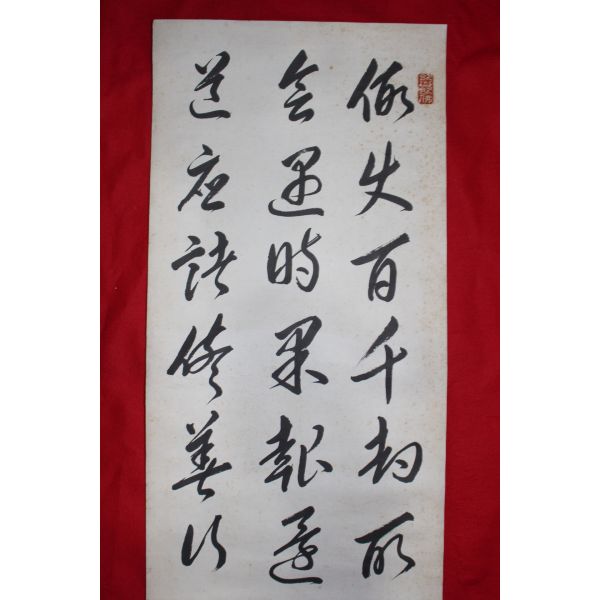 假使百千劫所
會遇時果報還
道應諸修善行